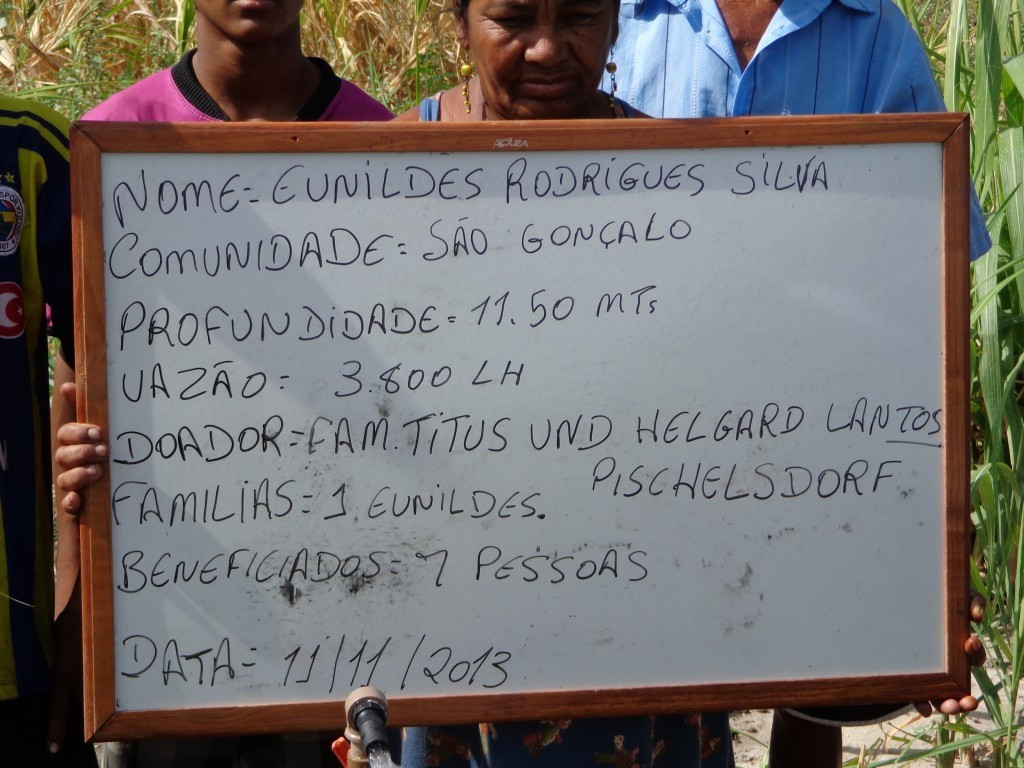 NOME= EUNILDES RODRIGUES SILVA
COMUNIDADE= SÃO GONÇALO
PROFUNDIDADE= 11.50 MTs
VAZÃO= 3.800 LH
DOADOR=FAM.TITUS UND HELGARD LANTOS
PISCHELSDORF
FAMILIAS=1 EUNILDES.
BENEFICIADOS= 7 PESSOAS
DATA= 11/11/2013